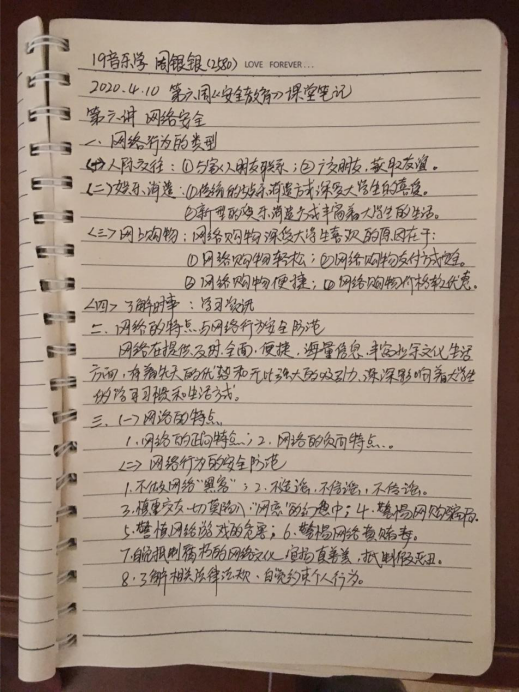 19音乐学 周银银(2580) LOVE FOREVER...
2020.4.10 第六周《安全教育》课堂笔记
第六讲 网络安全
一、网络行为的类型
(一)人际交往：①与家人朋友联系；②广交朋友，获取友谊。
(二)娱乐消遣：①传统的娱乐消遣方式深受大学生的喜爱。
②新型的娱乐消遣方式丰富着大学生的生活。
(三)网上购物：网络购物深受大学生喜欢的原因在于：
①网络购物轻松；②网络购物支付方式
③网络购物便捷；④网络购物价格较优惠。
(四)了解时事：学习资讯
二、网络的特点与网络行为安全防范
网络在提供及时、全面、便捷、海量信息、丰富业余文化生活
方面，有着先天的优势和无比强大的吸引力，深深影响着大学生
的学习习惯和生活方式。
三、(一)网络的特点
1.网络的正向特点；2.网络的负向特点。
(二)网络行为的安全防范
1.不做网络“黑客”；2.不造谣、不信谣、不传谣。
3.慎重交友，切莫陷入“网恋”的幻想中；4.警惕网购骗局。
5.警惕网络游戏的危害；6.警惕网络黄赌毒。
7.自觉抵制腐朽的网络文化，宣扬真善美，抵制假恶丑。
8.了解相关法律法规，自觉约束个人行为。